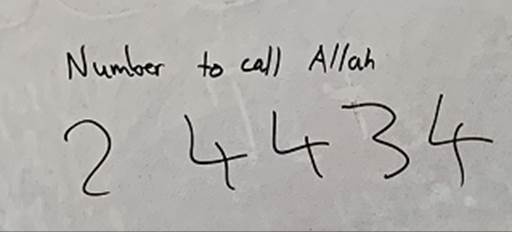 Number to call Allah
2 4 4 3 4